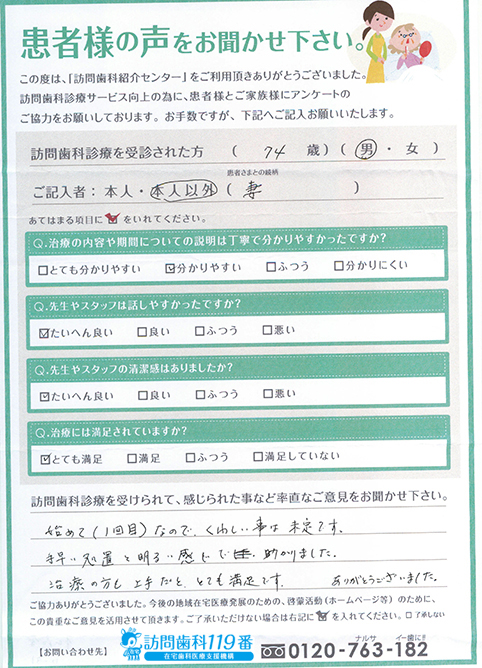 患者様の声をお聞かせ下さい。
この度は、「訪問歯科紹介センター」をご利用頂きありがとうございました。
訪問歯科診療サービス向上の為に、患者様とご家族様にアンケートの
ご協力をお願いしております。お手数ですが、下記へご記入お願いいたします。
訪問歯科診療を受診された方 ( 74 歳)(男・女)
患者さまとの続柄
ご記入者：本人・本人以外(妻)
あてはまる項目に をいれてください。
Q.治療の内容や期間についての説明は丁寧で分かりやすかったですか?
□とても分かりやすい ☑分かりやすい □ふつう □分かりにくい
Q.先生やスタッフは話しやすかったですか?
☑たいへん良い □良い □ふつう □悪い
Q.先生やスタッフの清潔感はありましたか?
☑たいへん良い □良い □ふつう □悪い
Q.治療には満足されていますか?
☑とても満足 □満足 □ふつう □満足していない
訪問歯科診療を受けられて、感じられた事など率直なご意見をお聞かせ下さい。
始めて(1回目)なので、くわしい事は未定です。
早い処置と明るい感じで 助かりました。
治療の方も上手だと、とても満足です。 ありがとうございました。
ご協力ありがとうございました。今後の地域在宅医療発展のための、啓蒙活動(ホームページ等)のために、
この貴重なご意見を活用させて頂きます。ご了承いただけない場合は右記に を入れてください。□了承しない
【お問い合わせ先】 訪問歯科119番 在宅歯科医療支援機構 ナルサ イー歯に!! 0120-763-182